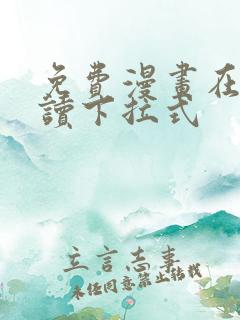 免費漫畫在
讀下拉式
立言志事
未经同意禁止转载